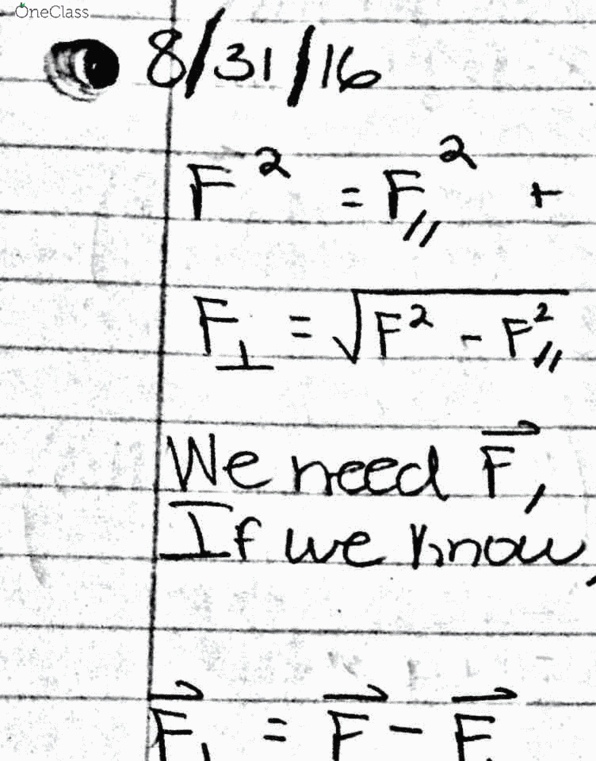 OneClass
8/31/16
F² = F∥² +
F⊥ = √F² - F∥²
We need F⃗,
If we know,
F⃗ = F⃗ - F⃗